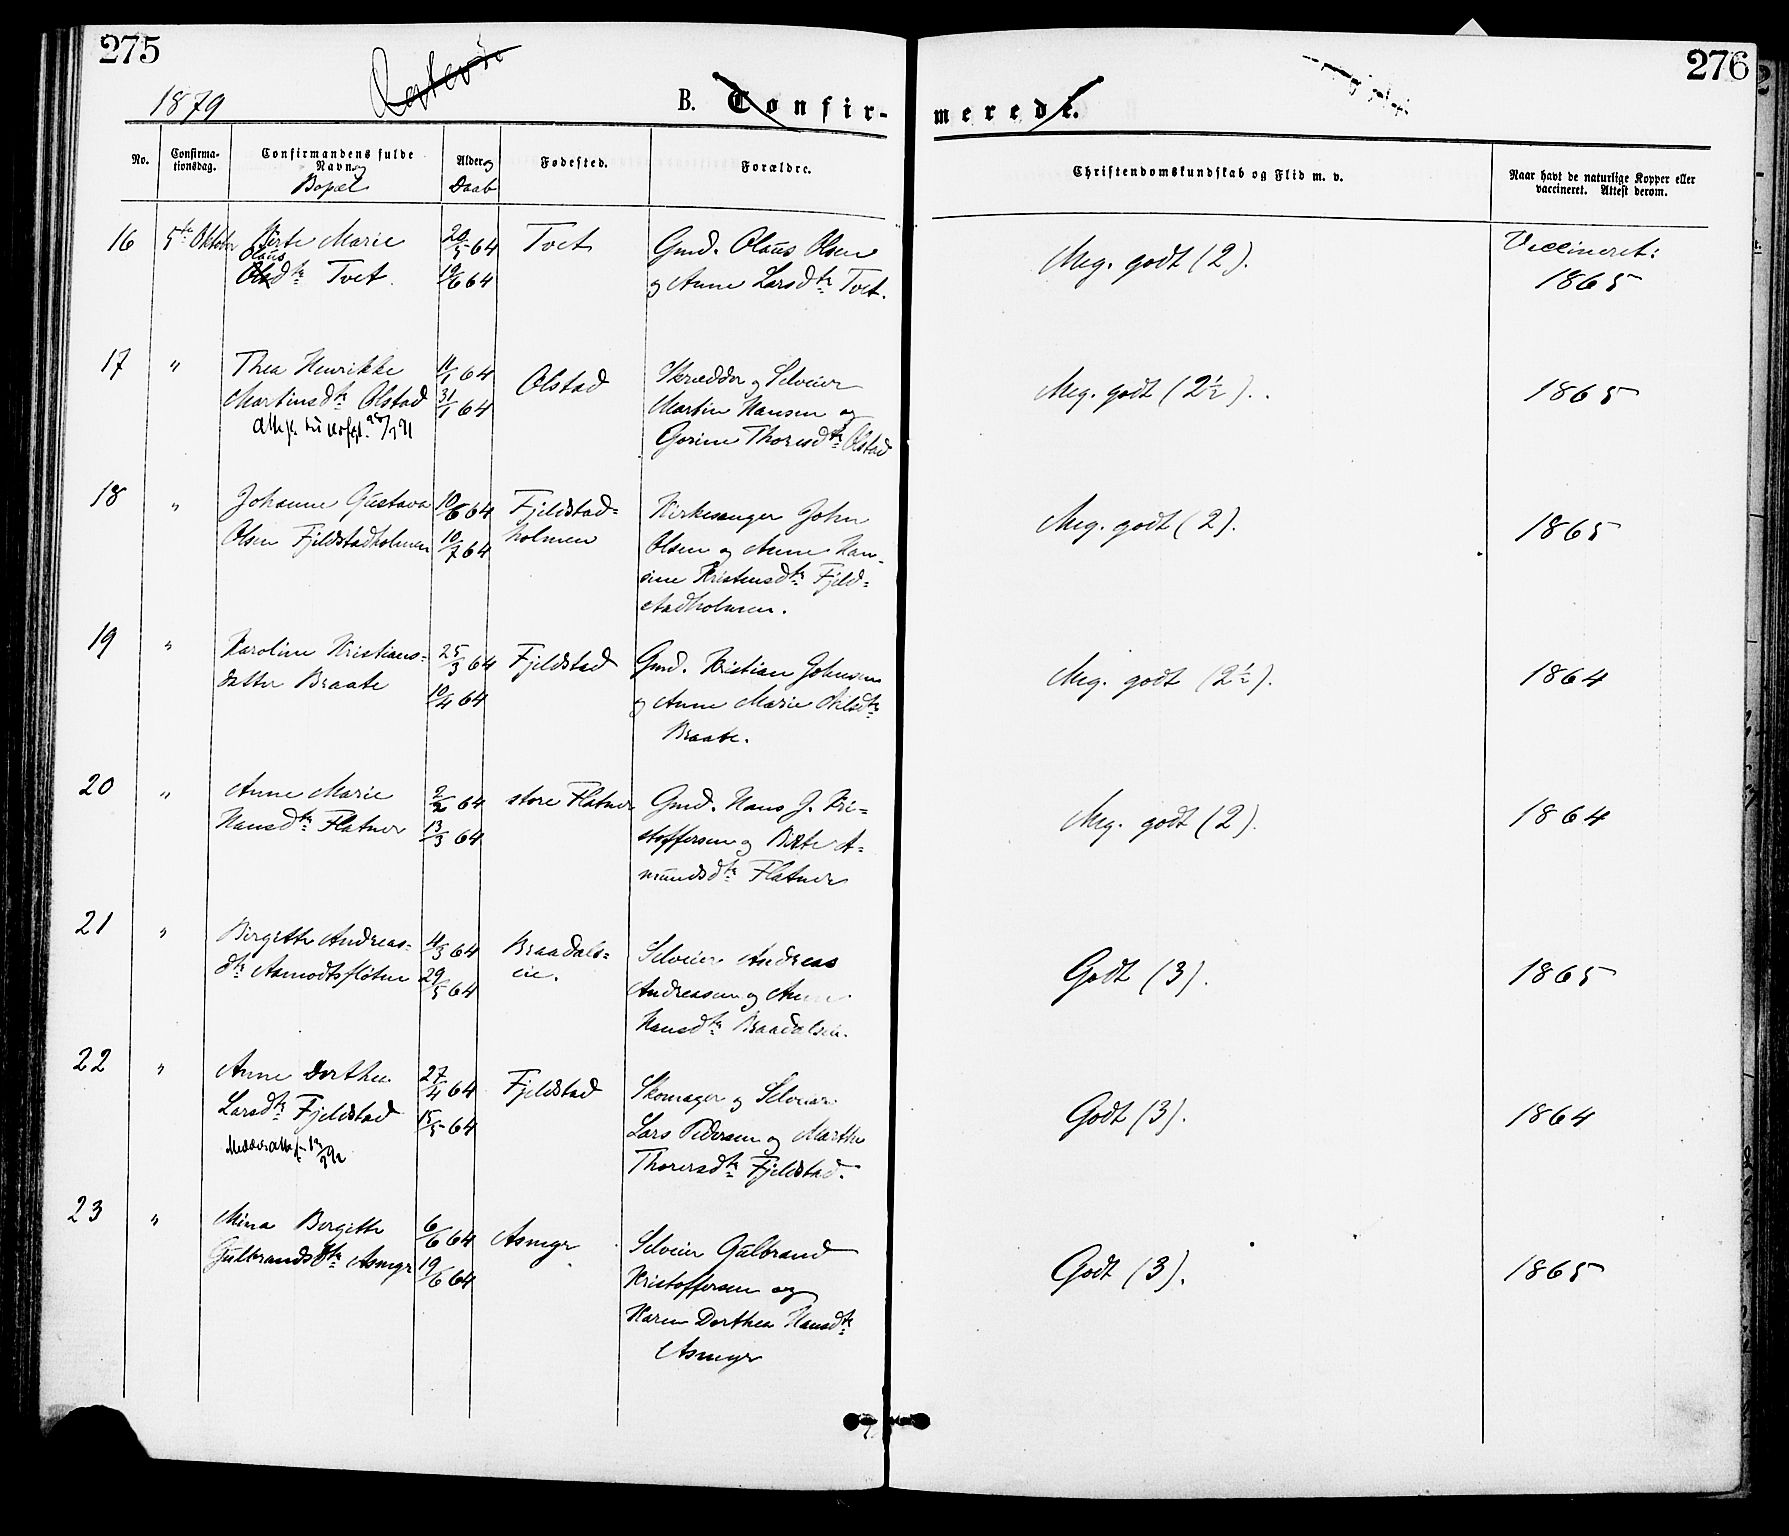 275
276
1879
B. Confir-
merede.
No.
Confirma-
tionsdag.
Confirmandens fulde
Navn og
Bopæl
Alder og
Daab
Fødested.
Forældre.
Christendomskundskab og Flid m. v.
Naar havt de naturlige Kopper eller
vaccineret. Attest derom.
16 5te Oktober Birte Marie 20/5 64 Tvet Gmd. Olaus Olsen Meg. godt (2). Vaccineret:
Olaus
Olsdtr Tvet. 19/6 64 og Anne Larsdtr Tvet. 1865
17 " Thea Henrikke 11/1 64 Olstad Skrædder og Selveier Meg. godt (2½). 1865
Martinsdtr Olstad 31/1 64 Martin Hansen og
Gorine Thoresdtr Olstad
18 " Johanne Gustava 10/6 64 Fjeldstad= Kirkesanger John Meg. godt (2). 1865
Olsen Fjeldstadholmen 10/7 64 holmen Olsen og Anne Han-
sine Kristensdtr Fjeld=
stadholmen.
19 " Karoline Kristians= 25/3 64 Fjeldstad Gmd. Kristian Johnsen Meg. godt (2½). 1864
datter Braate 10/4 64 og Anne Marie Nilsdtr
Braate.
20 " Anne Marie 2/2 64 store Flatner Gmd. Hans J. Kri= Meg. godt (2). 1864
Hansdtr Flatner 13/3 64 stoffersen og Birte A=
mundsdtr Flatner
21 " Birgitte Andreas= 4/3 64 Braadals= Selveier Andreas Godt (3). 1865
dtr Asmodtsfløtne 29/5 64 eie. Andreasen og Anne
Hansdtr Braadalseie.
22 " Anne Dorthea 27/4 64 Fjeldstad Skomager og Selveier Godt (3). 1864
Larsdtr Fjeldstad 15/5 64 Lars Pedersen og Marthe
Thorersdtr Fjeldstad.
23 " Mina Bergitte 6/6 64 Asmyr Selveier Gulbrand Godt (3). 1865
Gulbrandsdtr Asmyr 19/6 64 Kristoffersen og
Karen Dorthea Hansdtr
Asmyr